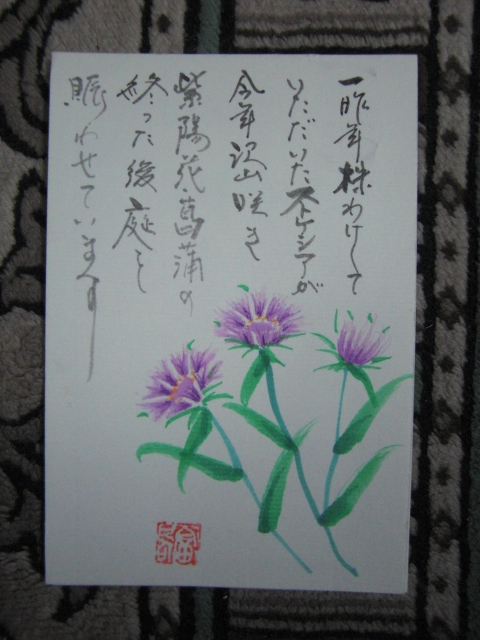 一昨年株わけして
いただいたストケシアが
今年沢山咲き
紫陽花、菖蒲の
終った後庭を
賑わせています